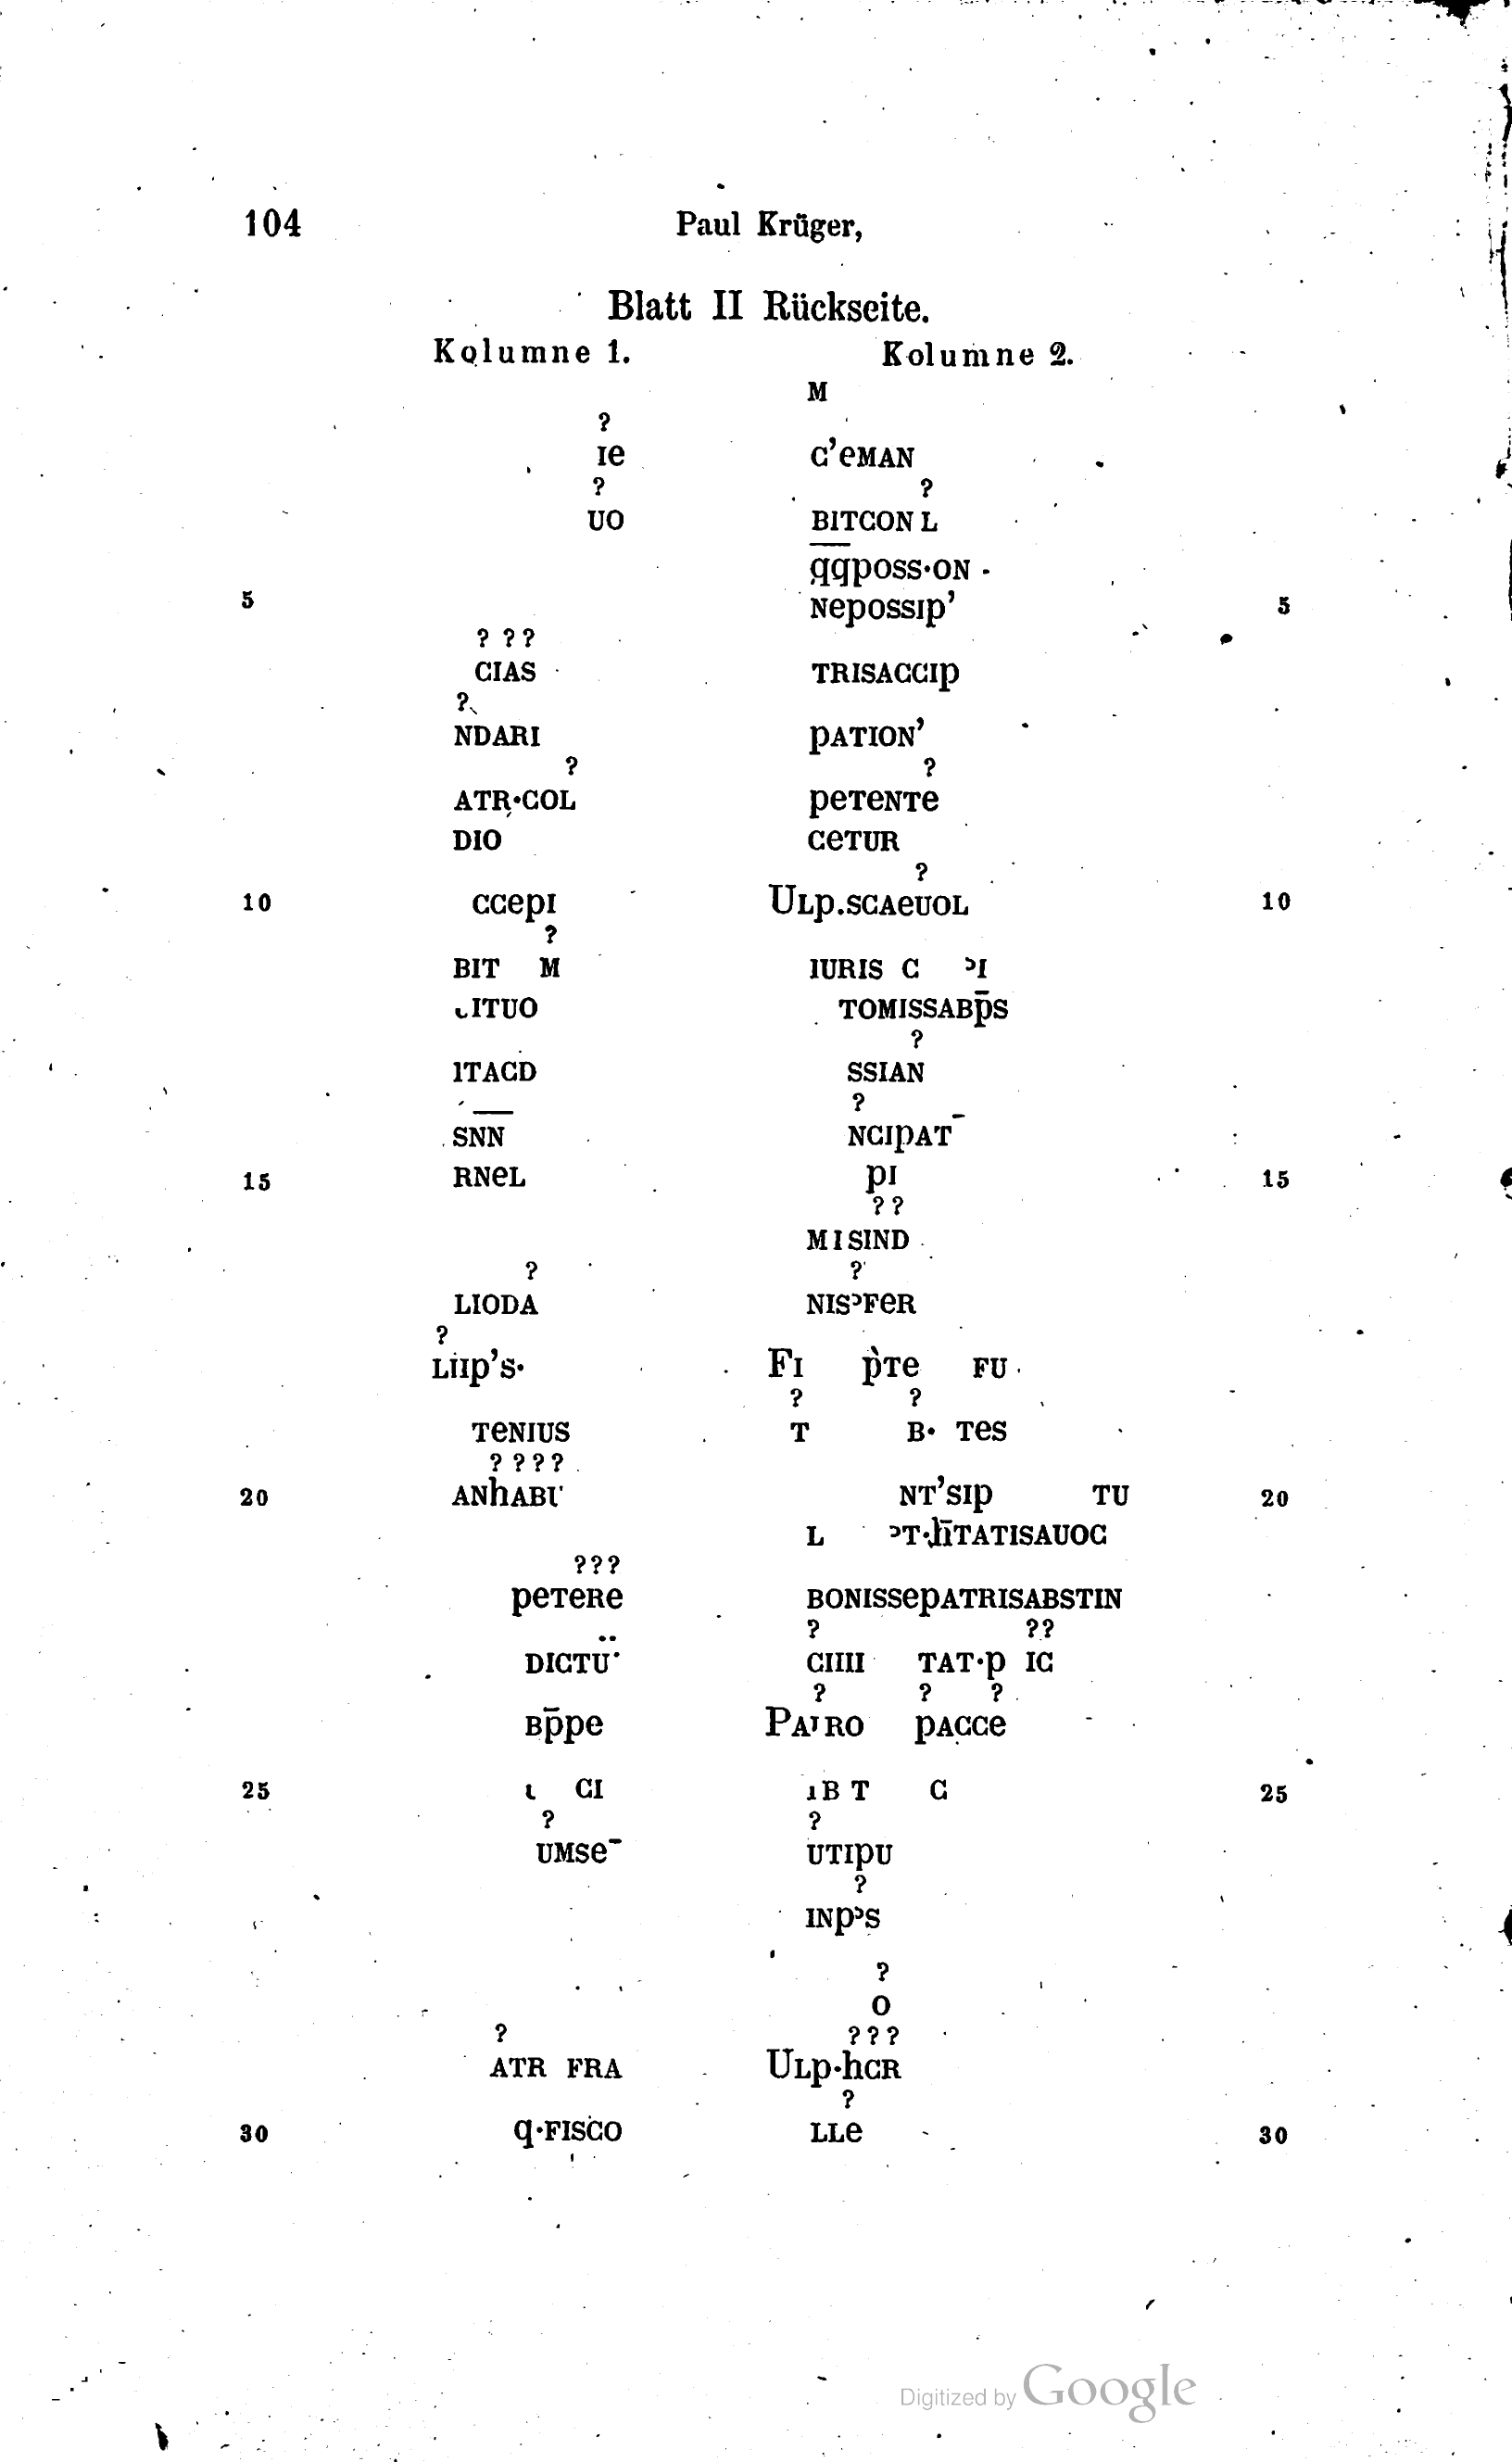 104 Paul Krüger,
Blatt II Rückseite.
Kolumne 1. Kolumne 2.
M
?
Ie C’eMAN
? ?
UO BITCON L
qqposs·ON ·
5 Nepossip’ 5
? ? ?
CIAS TRISACCIp
?
NDARI pATION’
? ?
ATR·COL peTeNTe
DIO CeTUR
?
10 ccepI ULp.SCAeUOL 10
?
BIT M IURIS C ͻI
ITUO TOMISSABp̄S
?
ITACD SSIAN
?
SNN NCIpAT¯
15 RNeL pI 15
? ?
MISIND
? ?
LIODA NISͻFeR
?
Liip’s· FI p̀Te FU
? ?
TeNIUS T B· Tes
? ? ? ?
20 ANhABU NT’SIp TU 20
L ͻT·h̄TATISAUOC
? ? ?
peTeRe BONISSepATRISABSTIN
? ? ?
DICTU CIIII TAT·p IC
? ? ?
Bp̄pe PATRO pACCe
25 ι CI ıB T C 25
? ?
UMSe¯ UTIpU
?
INpͻS
?
O
? ? ? ?
ATR FRA ULp·hCR
?
30 q·FISCO LLe 30
Digitized by Google